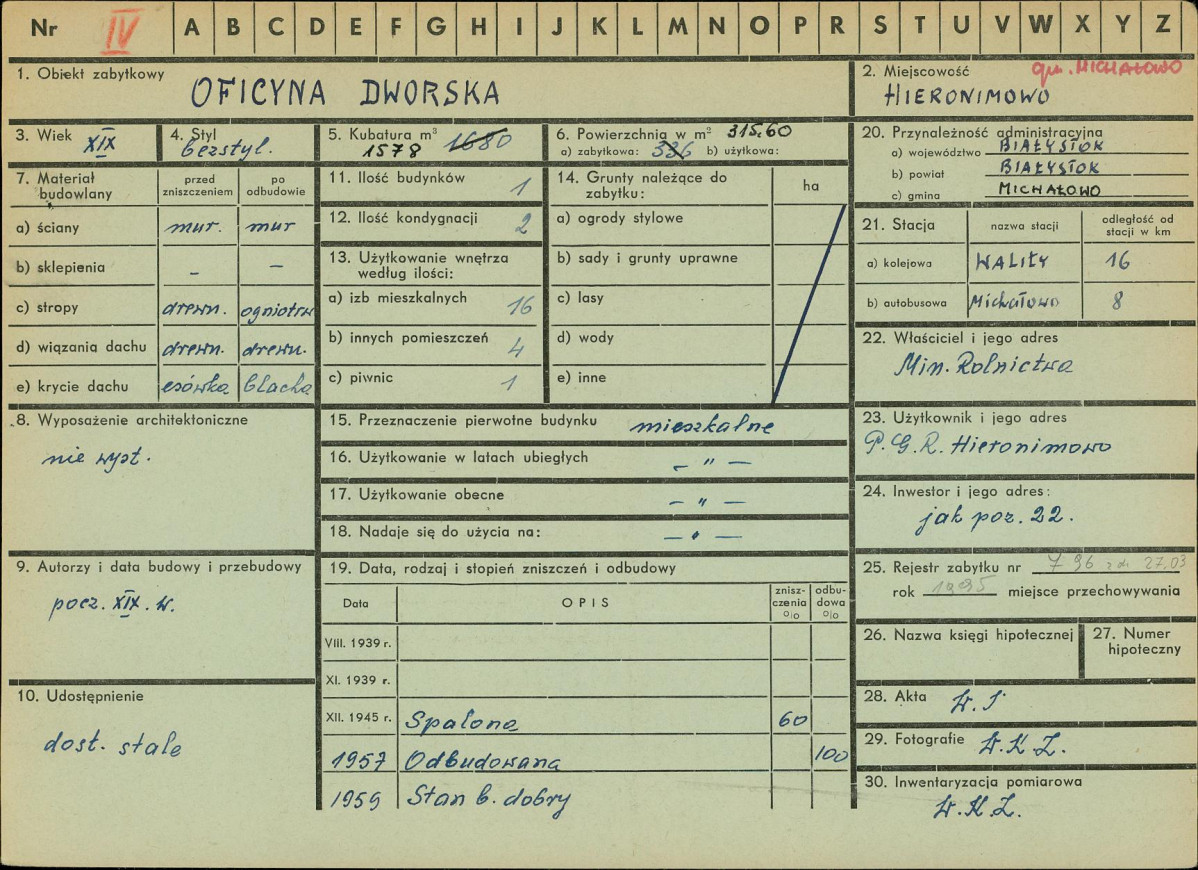 Nr IV A B C D E F G H I J K L M N O P R S T U V W X Y Z
1. Obiekt zabytkowy
OFICYNA DWORSKA
2. Miejscowość gm. MICHAŁOWO
HIERONIMOWO
3. Wiek
XIX
4. Styl
bezstyl.
5. Kubatura m³ 1680
1578
6. Powierzchnia w m² 315.60
a) zabytkowa: 336 b) użytkowa:
7. Materiał budowlany
przed zniszczeniem
po odbudowie
a) ściany mur. mur
b) sklepienia – –
c) stropy drewn. ogniotrw
d) wiązania dachu drewn. drewn.
e) krycie dachu esówka blacha
8. Wyposażenie architektoniczne
nie wyst.
9. Autorzy i data budowy i przebudowy
pocz. XIX. w.
10. Udostępnienie
dost. stale
11. Ilość budynków 1
12. Ilość kondygnacji 2
13. Użytkowanie wnętrza
według ilości:
a) izb mieszkalnych 16
b) innych pomieszczeń 4
c) piwnic 1
14. Grunty należące do
zabytku:
ha
a) ogrody stylowe
b) sady i grunty uprawne
c) lasy
d) wody
e) inne
15. Przeznaczenie pierwotne budynku mieszkalne
16. Użytkowanie w latach ubiegłych – " –
17. Użytkowanie obecne – " –
18. Nadaje się do użycia na: – " –
19. Data, rodzaj i stopień zniszczeń i odbudowy
Data
OPIS
znisz-
czenia
%
odbu-
dowa
%
VIII. 1939 r.
XI. 1939 r.
XII. 1945 r. Spalona 60
1957 Odbudowana 100
1959 Stan b. dobry
20. Przynależność administracyjna
a) województwo BIAŁYSTOK
b) powiat BIAŁYSTOK
c) gmina MICHAŁOWO
21. Stacja
nazwa stacji
odległość od
stacji w km
a) kolejowa WALIŁY 16
b) autobusowa Michałowo 8
22. Właściciel i jego adres
Min. Rolnictwa
23. Użytkownik i jego adres
P.G.R. Hieronimowo
24. Inwestor i jego adres:
jak poz. 22.
25. Rejestr zabytku nr 796 z dn 27.03
rok 1995 miejsce przechowywania
26. Nazwa księgi hipotecznej
27. Numer
hipoteczny
28. Akta
29. Fotografie W.K.Z.
30. Inwentaryzacja pomiarowa
W.K.Z.